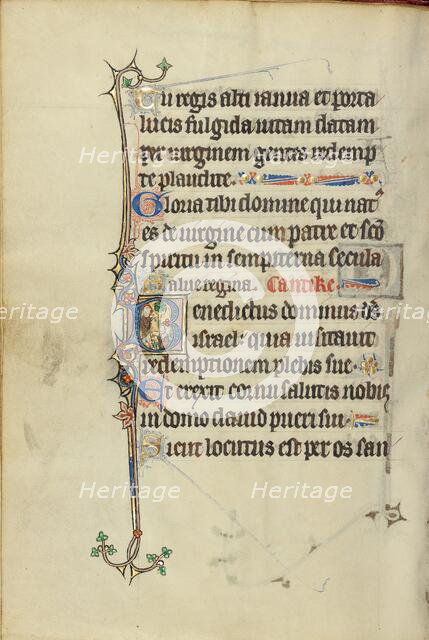 Tu regis alti ianua et porta
lucis fulgida uitam datam
per uirginem gentes redemp
te plaudite.
Gloria tibi domine qui nat9
es de uirgine cum patre et sco
spiritu in sempiterna secula
Salue regina. Cantike.
Benedictus dominus ds
israel quia uisitauit
redemptionem plebis sue
Et erexit cornu salutis nobis
in domo dauid pueri sui
Sicut locutus est per os san
Heritage
Heritage
Heritage
Heritage
Heritage
Heritage